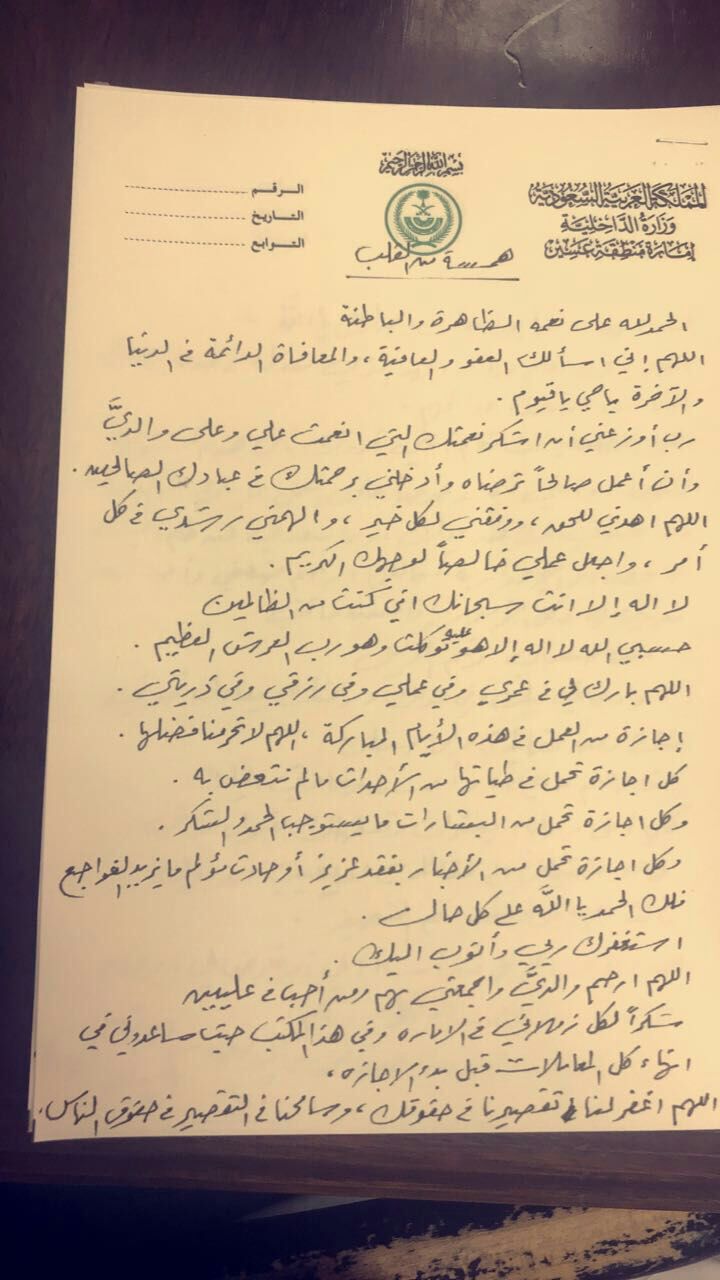 بسم الله الرحمن الرحيم
المملكة العربية السعودية
وزارة الداخلية
إمارة منطقة عسير
الرقم
التاريخ
التوابع
همسة من القلب
الحمد لله على نعمه الظاهرة والباطنة
اللهم إني اسألك العفو والعافية، والمعافاة الدائمة في الدنيا
والآخرة ياحي ياقيوم.
رب أوزعني أن اشكر نعمتك التي انعمت علي وعلى والديَّ
وأن أعمل صالحاً ترضاه وأدخلني برحمتك في عبادك الصالحين.
اللهم اهدني للحق، ووفقني لكل خير، والهمني رشدي في كل
أمر، واجعل عملي خالصاً لوجهك الكريم.
لا اله إلا انت سبحانك اني كنت من الظالمين
حسبي الله لا اله إلا هو عليه توكلت وهو رب العرش العظيم.
اللهم بارك لي في عمري وفي عملي وفي رزقي وفي ذريتي.
إجازة من العمل في هذه الأيام المباركة، اللهم لاتحرمنا فضلها.
كل اجازة تحمل في طياتها من الأحداث مالم نتعض به.
وكل اجازة تحمل من البشارات ما يستوجب الحمد والشكر.
وكل اجازة تحمل من الأخبار بفقد عزيز أو حادث مؤلم ما يزيد الفواجع
فلك الحمد يا اللَّه على كل حال.
استغفرك ربي وأتوب اليك.
اللهم ارحم والديَّ واجمعني بهم ومن أحب في عليين
شكراً لكل زملائي في الاماره وفي هذا المكتب حيث ساعدوني في
انهاء كل المعاملات قبل بدء الاجازه،
اللهم اغفر لنا تقصيرنا في حقوقك، وسامحنا في التقصير في حقوق الناس.